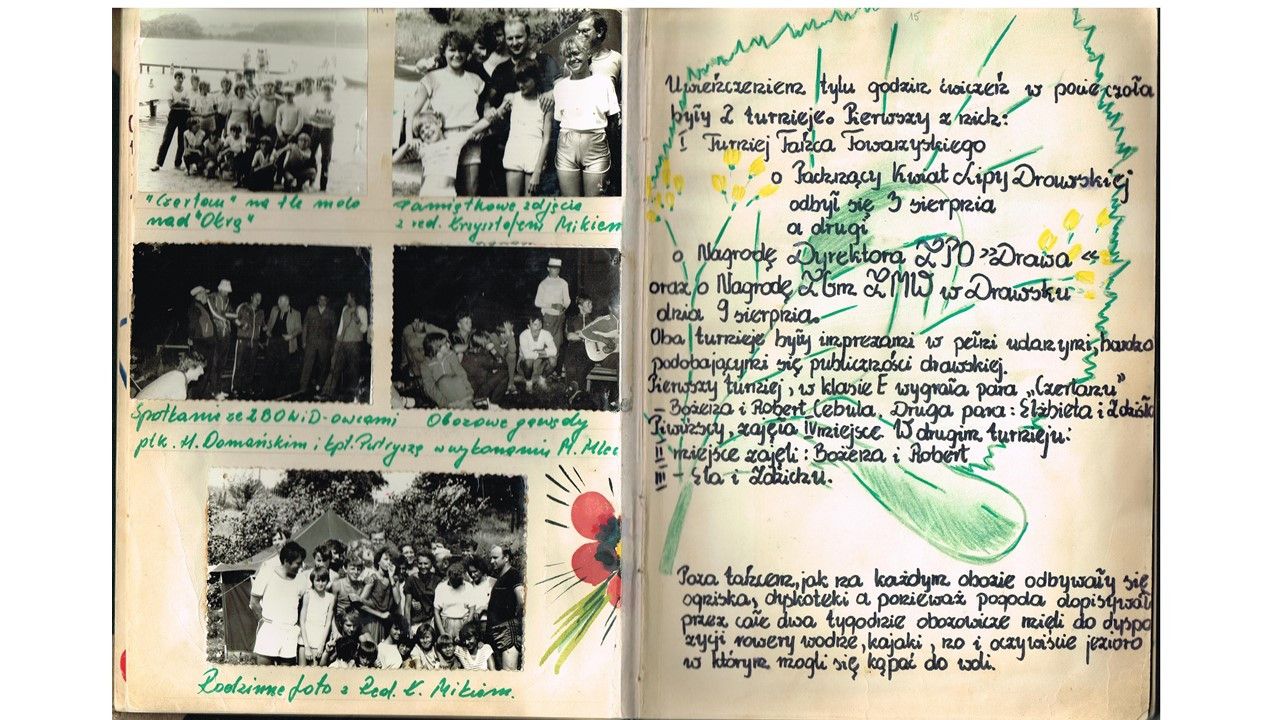 "Czertani" na tle molo
nad "Okrą"
Pamiątkowe zdjęcie
z red. Krzysztofem Mikiem
Spotkanie ze ZBOWiD-owcami
płk. H. Domańskim i kpt. Putryszą
Obozowe gawędy
w wykonaniu M. Mlec
Rodzinne foto z Red. K. Mikiem.
15
Uwieńczeniem tylu godzin ćwiczeń w pocie czoła
były 2 turnieje. Pierwszy z nich:
I Turniej Tańca Towarzyskiego
o Pachnący Kwiat Lipy Drawskiej
odbył się 3 sierpnia
a drugi
o Nagrodę Dyrektora ZPO "Drawa"
oraz o Nagrodę ZGm ZMW w Drawsku
dnia 9 sierpnia.
Oba turnieje były imprezami w pełni udanymi, bardzo
podobającymi się publiczności drawskiej.
Pierwszy turniej, w klasie E wygrała para „Czertanu"
- Bożena i Robert Cebula. Druga para: Elżbieta i Zdzisła
Piwińscy, zajęła IV miejsce. W drugim turnieju:
II miejsce zajęli: Bożena i Robert
III - Ela i Zdzichu.
Poza tańcem, jak na każdym obozie odbywały się
ogniska, dyskoteki a ponieważ pogoda dopisywała
przez całe dwa tygodnie obozowicze mieli do dyspo
zycji rowery wodne, kajaki, no i oczywiście jezioro
w którym mogli się kąpać do woli.